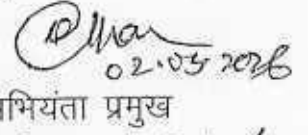 02.05.2026
अभियंता प्रमुख